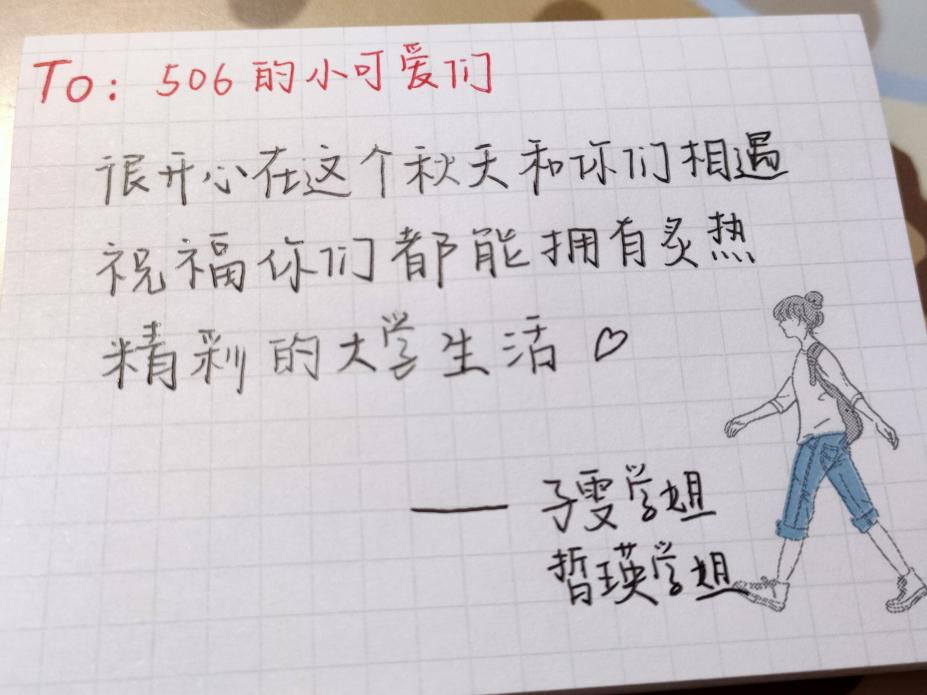 To: 506的小可爱们
很开心在这个秋天和你们相遇
祝福你们都能拥有炙热
精彩的大学生活♡
—— 子雯学姐
晢瑛学姐